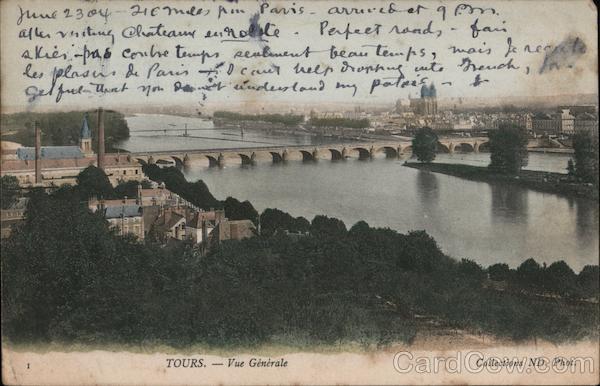 June 23 04 - 210 miles from Paris - arrived at 9 P.M.
after visiting Chateaux en route. Perfect roads - fair
skies - pas contre temps seulment beau temps, mais Je regrette
les plaisirs de Paris - I can't help dropping into French,
that you do not understand my patois -
1
TOURS. — Vue Générale
Collections ND. Phot.
CardCow.com